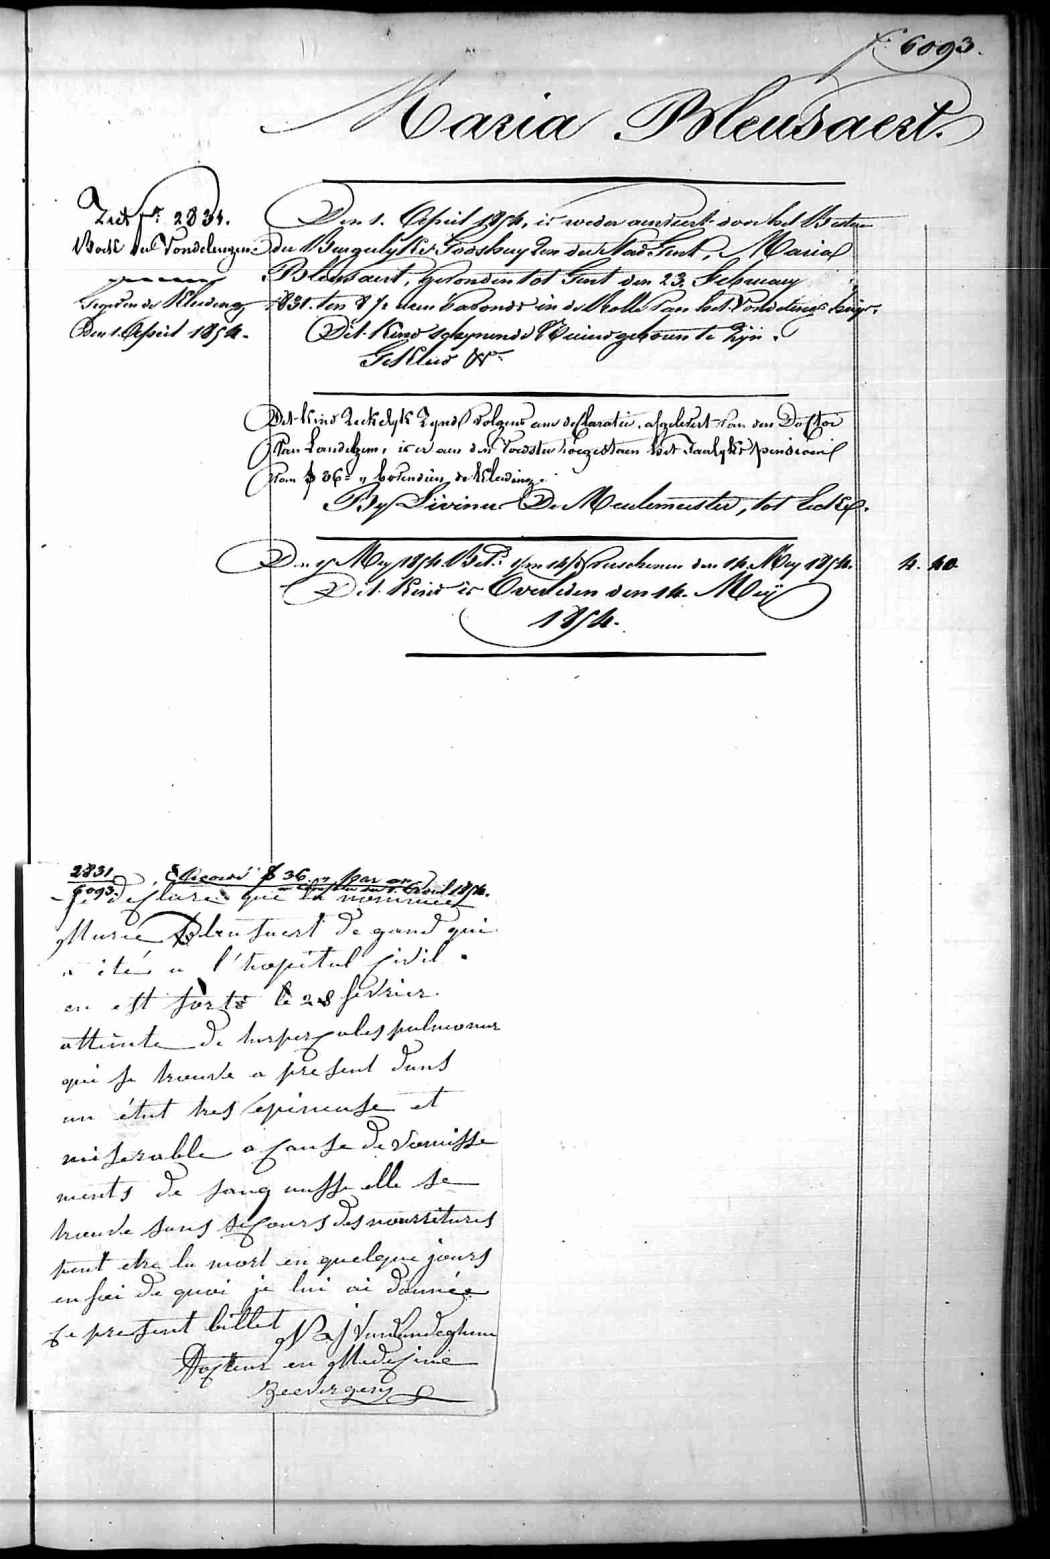 f° 6093.
Maria Bleusaert.
Zie f° 2831.
Boek der Vondelingen
Den 1. April 1854.
Den 1. April 1854, is weder aenveert door het Bestuer
der Burgerlyke Godshuyzen der Stad Gent, Maria
Bleusaert, gevonden tot Gent den 23. February
1831. ten 8 1/2 uren 's avonds in de Rolle van het Vondelings huis.
Dit Kind schynende Nieuw geboren te zyn.
Gekleed &a
Dit Kind Ziekelyk Zynde volgens eene declaratie, afgelevert van den Doctor
Van Landeghem, is er aen den Voedster toegestaen het Jaerlyks pensioen
van f 36 „ bovendien de Kleeding.
By Livinus De Meulemeester, tot Eecke.
Den 9 Mey 1854 Bet. verschenen den 14 Mey 1854. 4. 40
Dit Kind is Overleden den 14. Mey
1854.
2831
6093.
Accordé f 36 „ par an
1 Avril 1854.
Je déclare que la nommée
Marie Bleusaert de gand qui
a été a l'hopital civil
en est sorte le 28 fevrier
atteinte de tupercules pulmonair
qui se trouve a present dans
un état tres epineuse et
miserable a cause de vomisse
ments de sang ausse elle se
trouve sans secours des nourritures
peut etre la mort en quelque jours
en foi de quoi je lui ai donnée
ce present billet
J Vanlandeghem
Docteur en Medecine
Zeevergem